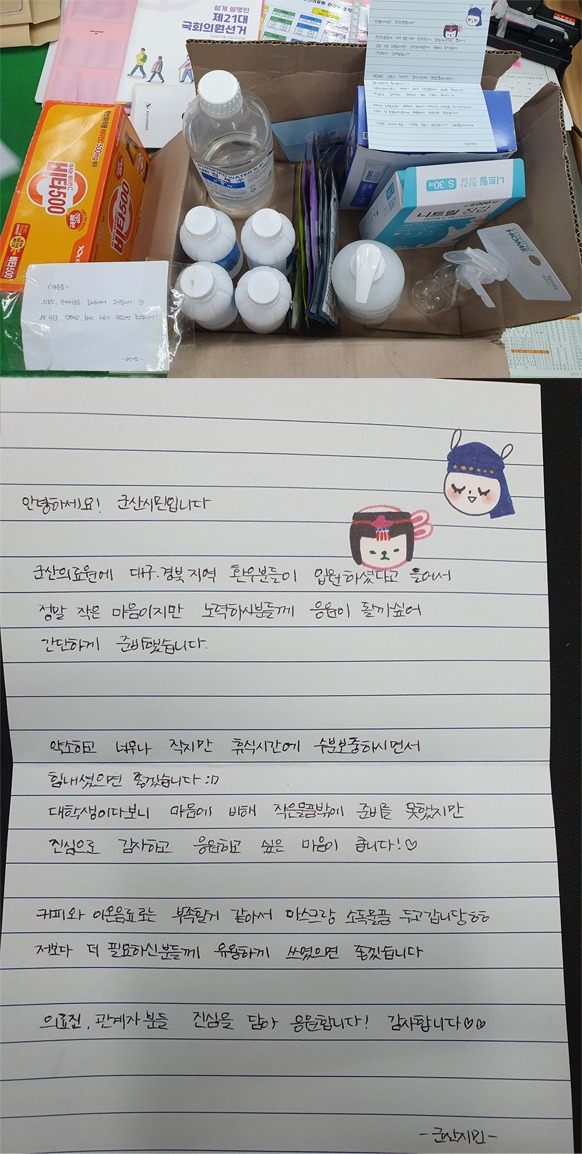 쉽게 설명한
제21대
국회의원선거
비타500
비타500
HOME
안녕하세요! 군산시민입니다
군산의료원에 대구·경북지역 환우분들이 입원하셨다고 들어서
정말 작은 마음이지만 노력하시분들께 응원이 될까싶어
간단하게 준비했습니다.
약소하고 너무나 작지만 휴식시간에 수분보충하시면서
힘내셨으면 좋겠습니다 :D
대학생이다보니 마음에 비해 작은물품밖에 준비를 못했지만
진심으로 감사하고 응원하고 싶은 마음이 큽니다!♡
커피와 이온음료로는 부족할거 같아서 마스크랑 소독물품 두고갑니당ㅎㅎ
저보다 더 필요하신분들께 유용하게 쓰였으면 좋겠습니다
의료진, 관계자분들 진심을 담아 응원합니다! 감사합니다♡♡
-군산시민-